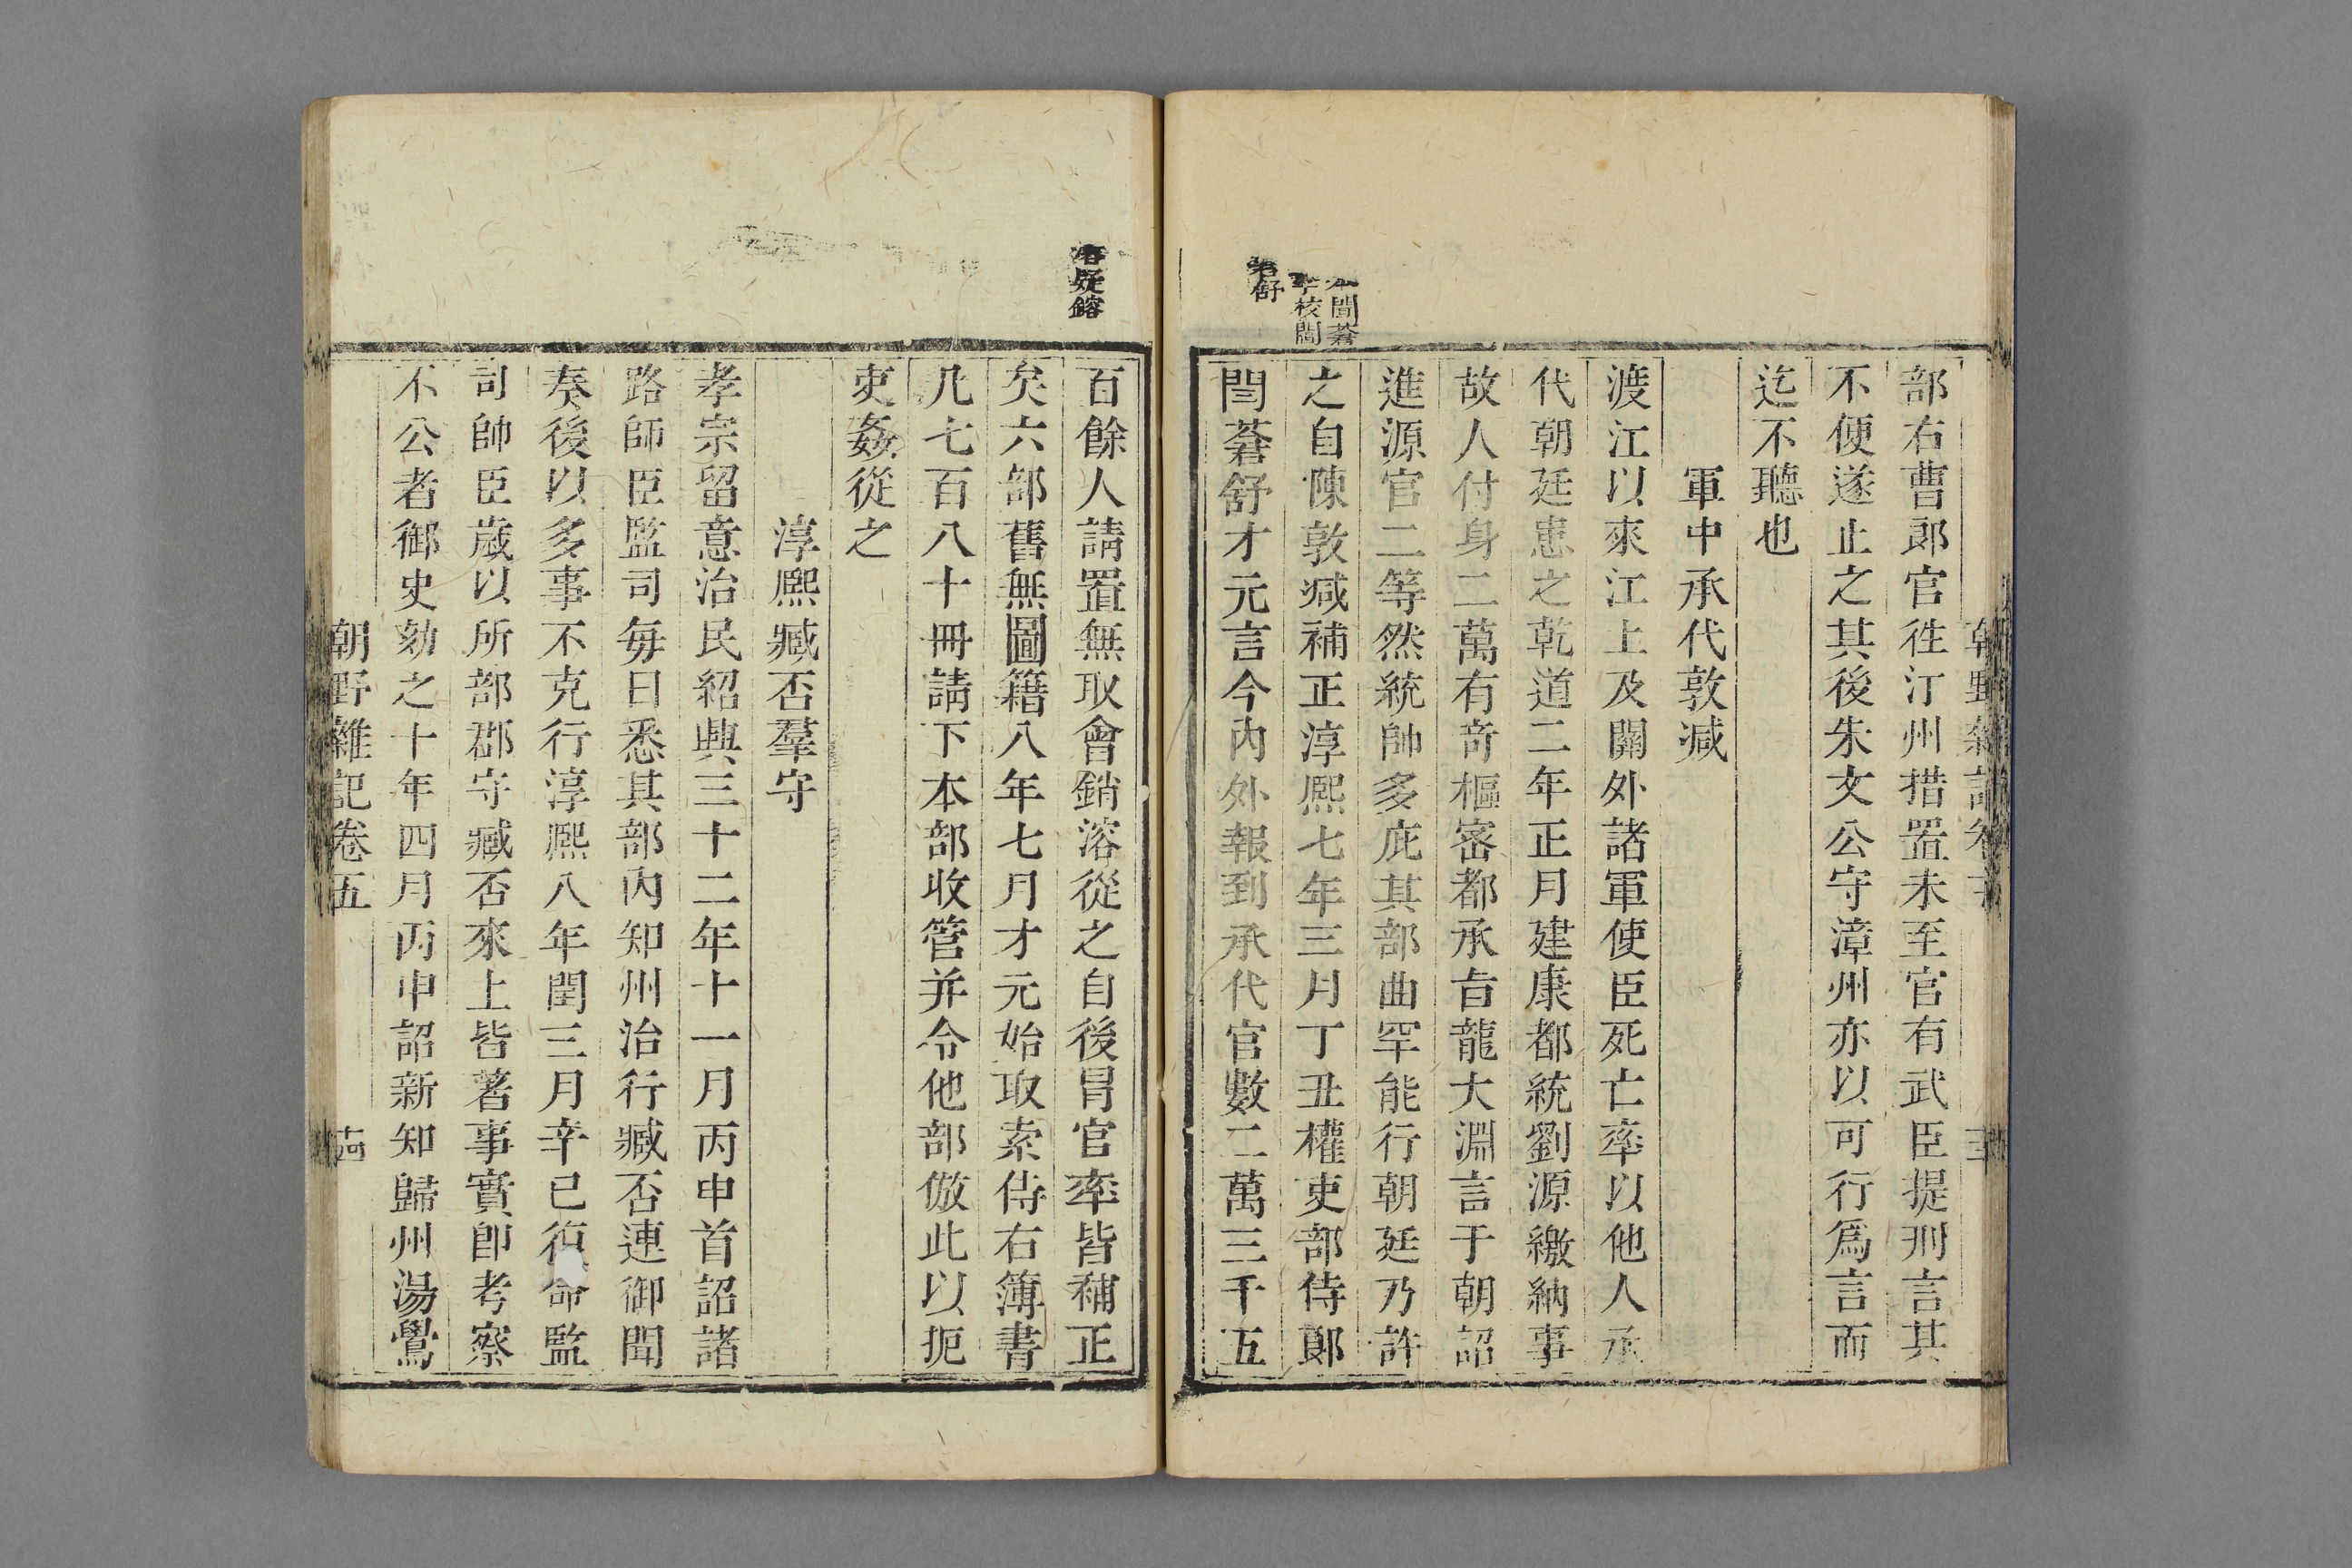 部右曹郎官徃汀州措置未至官有武臣提刑言其
不便遂止之其後朱文公守漳州亦以可行爲言而
迄不聽也
軍中承代敦减
渡江以來江上及關外諸軍使臣死亡率以他人承
代朝廷患之乾道二年正月建康都統劉源繳納事
故人付身二萬有奇樞密都承㫖龍大淵言于朝詔
進源官二等然統帥多庇其部曲罕能行朝廷乃許
之自陳敦减補正淳熙七年三月丁丑權吏部侍郎
閆蒼舒才元言今內外報到承代官數二萬三千五
閆蒼
校閆
舒
百餘人請置無取會銷溶從之自後冒官率皆補正
矣六部舊無圖籍八年七月才元始取索侍右簿書
凡七百八十冊請下本部收管并令他部倣此以扼
吏姦從之
淳熙臧否羣守
孝宗留意治民紹興三十二年十一月丙申首詔諸
路師臣監司毎日悉其部内知州治行臧否連御聞
奏後以多事不克行淳熙八年閏三月辛已復命監
司帥臣歲以所部郡守臧否來上皆著事實卽考察
不公者御史劾之十年四月丙申詔新知歸州湯鷽
朝野雜記卷五
十四
疑鎔